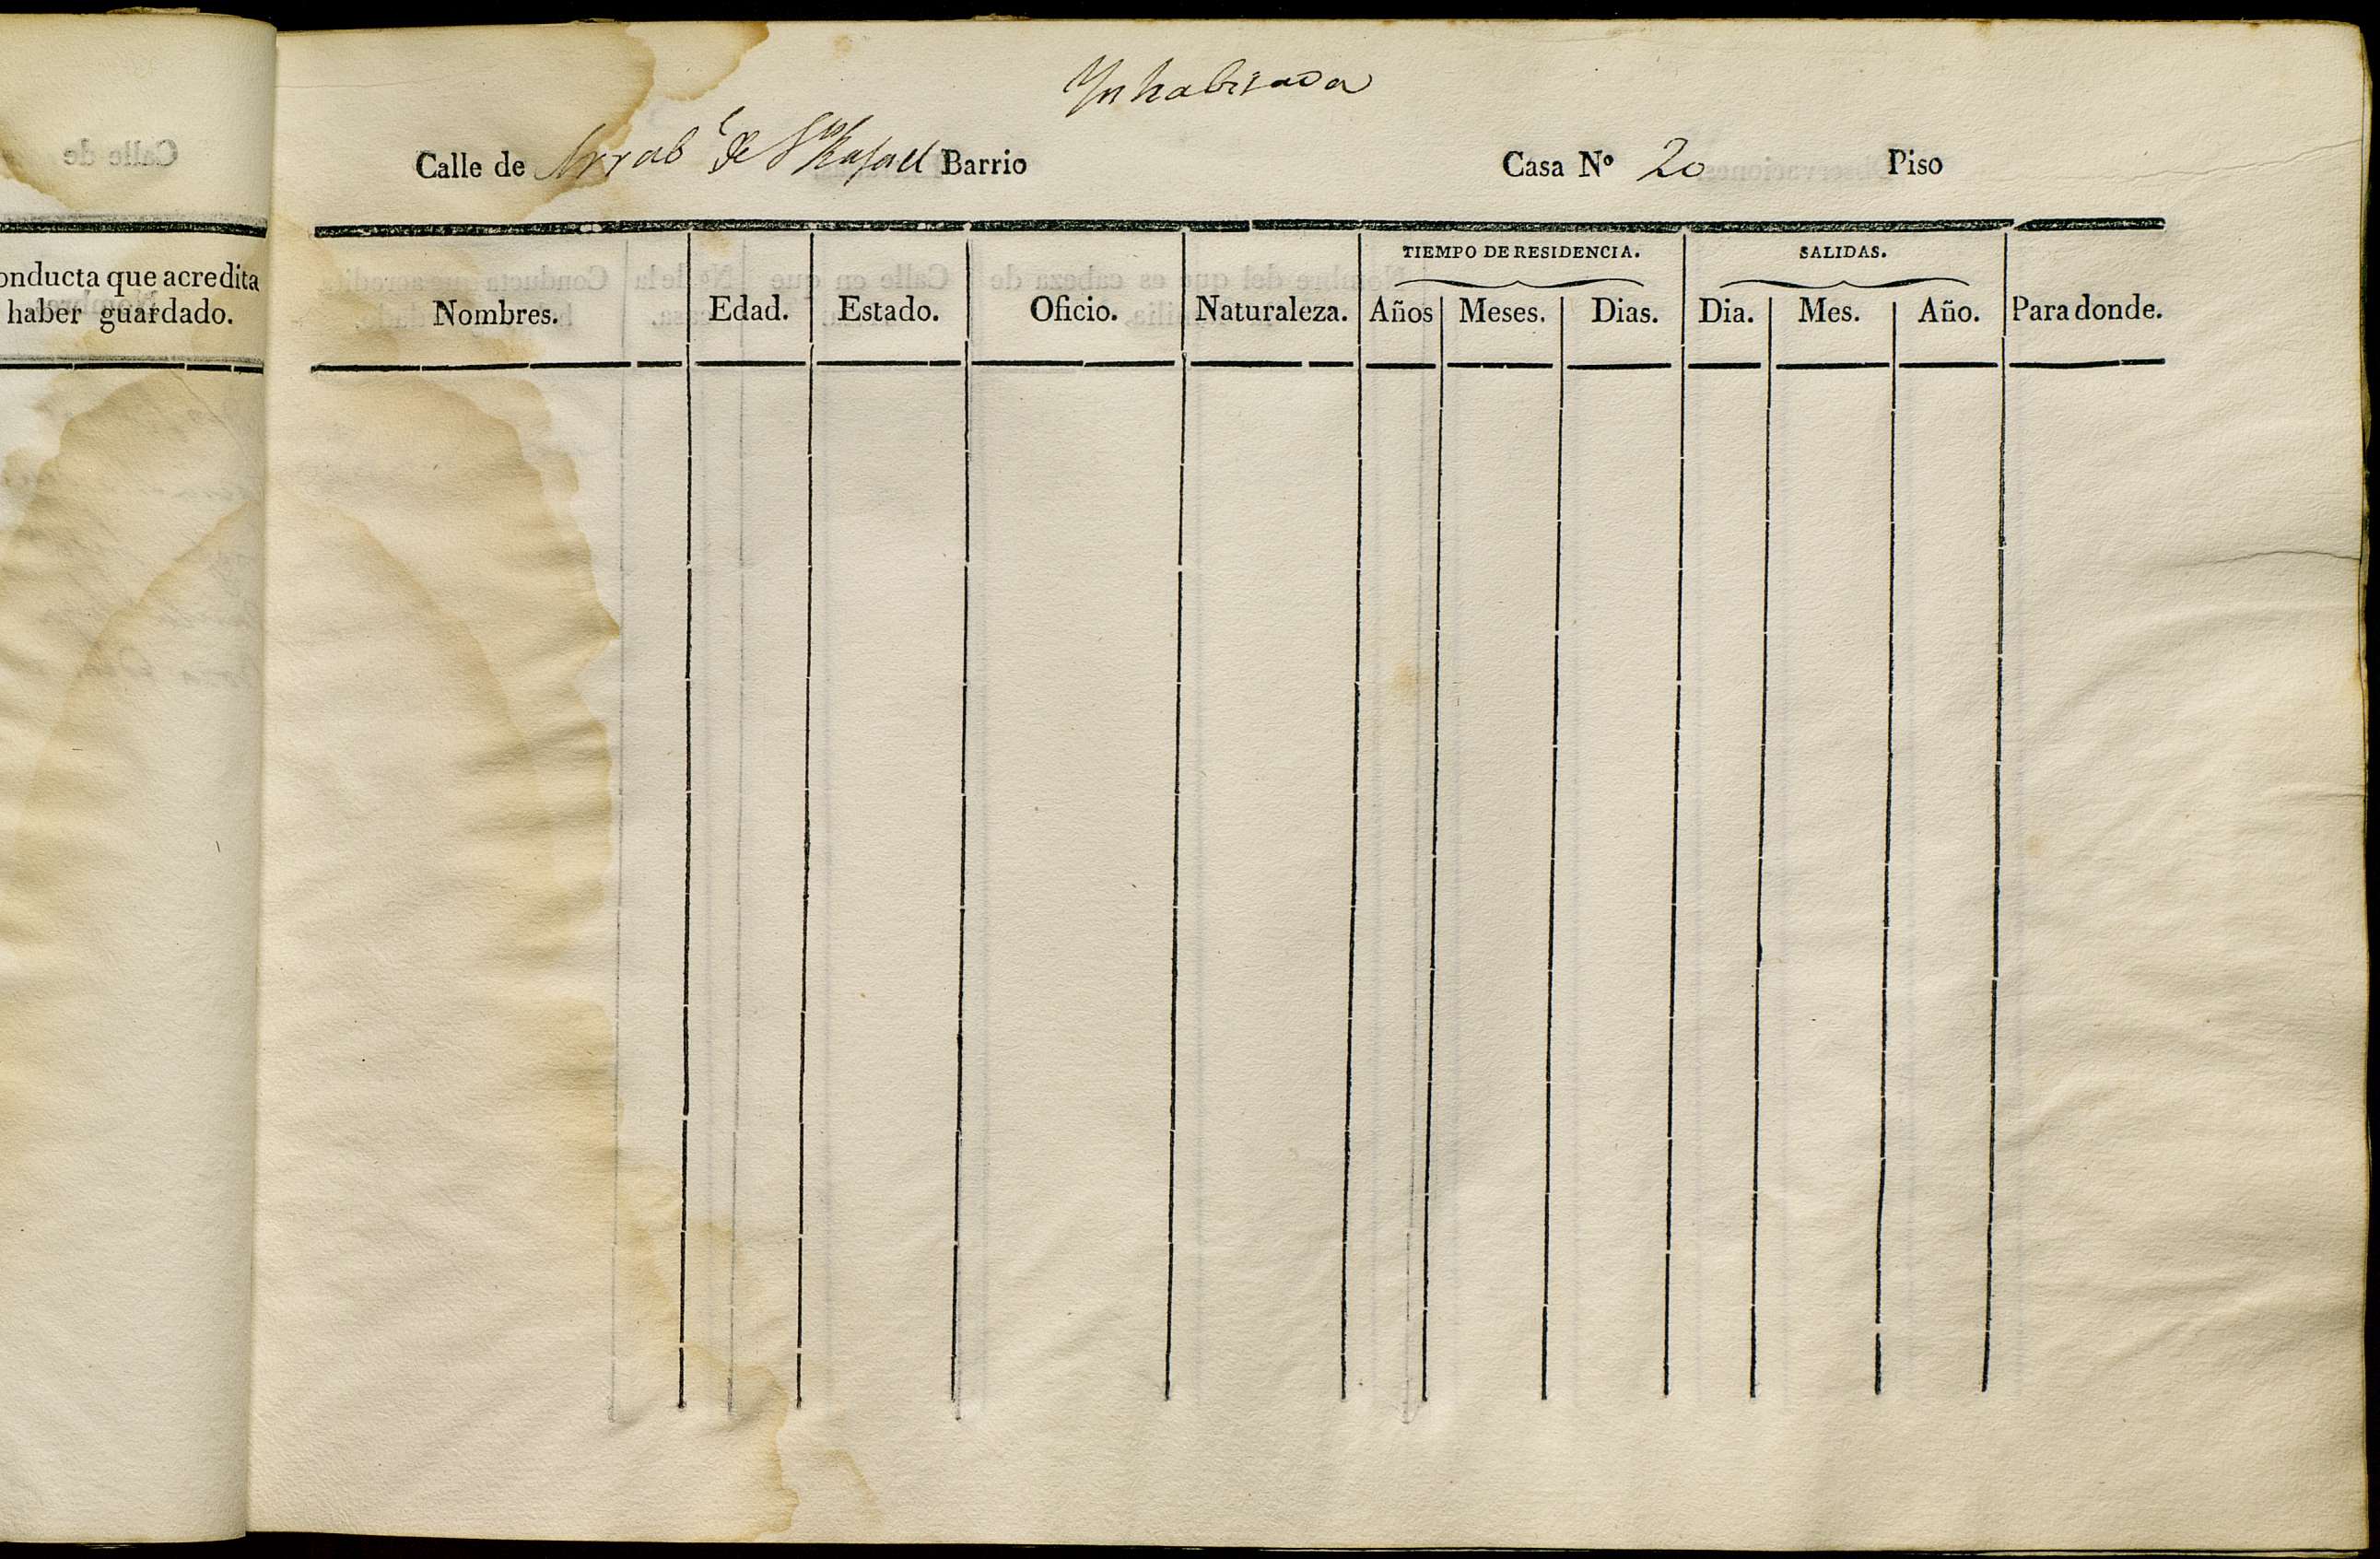 Inhabitada
Calle de Arrab.l de S.n Rafael Barrio Casa Nº 20 Piso
onducta que acredita
haber guardado.
TIEMPO DE RESIDENCIA. SALIDAS.
Nombres. Edad. Estado. Oficio. Naturaleza. Años Meses. Dias. Dia. Mes. Año. Para donde.